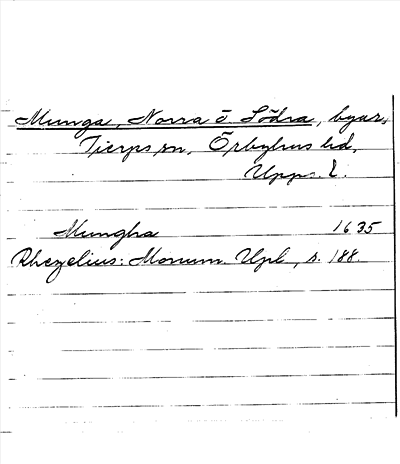 Munga, Norra o Södra, byar,
Tierps sn, Örbyhus hd,
Upps. l.
Mungha 1635
Rhezelius: Monum. Upl, s. 188.